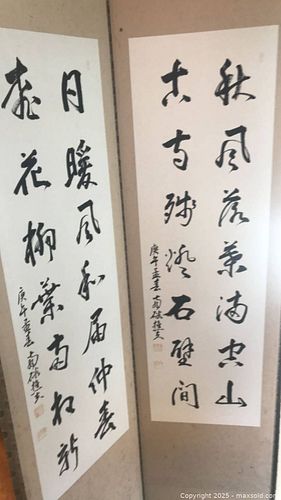 秋風落葉滿空山
古寺殘燈石壁間
庚午孟春
日暖風和屆仲春
桃花柳葉新
庚午孟春
Copyright © 2025 - maxsold.com